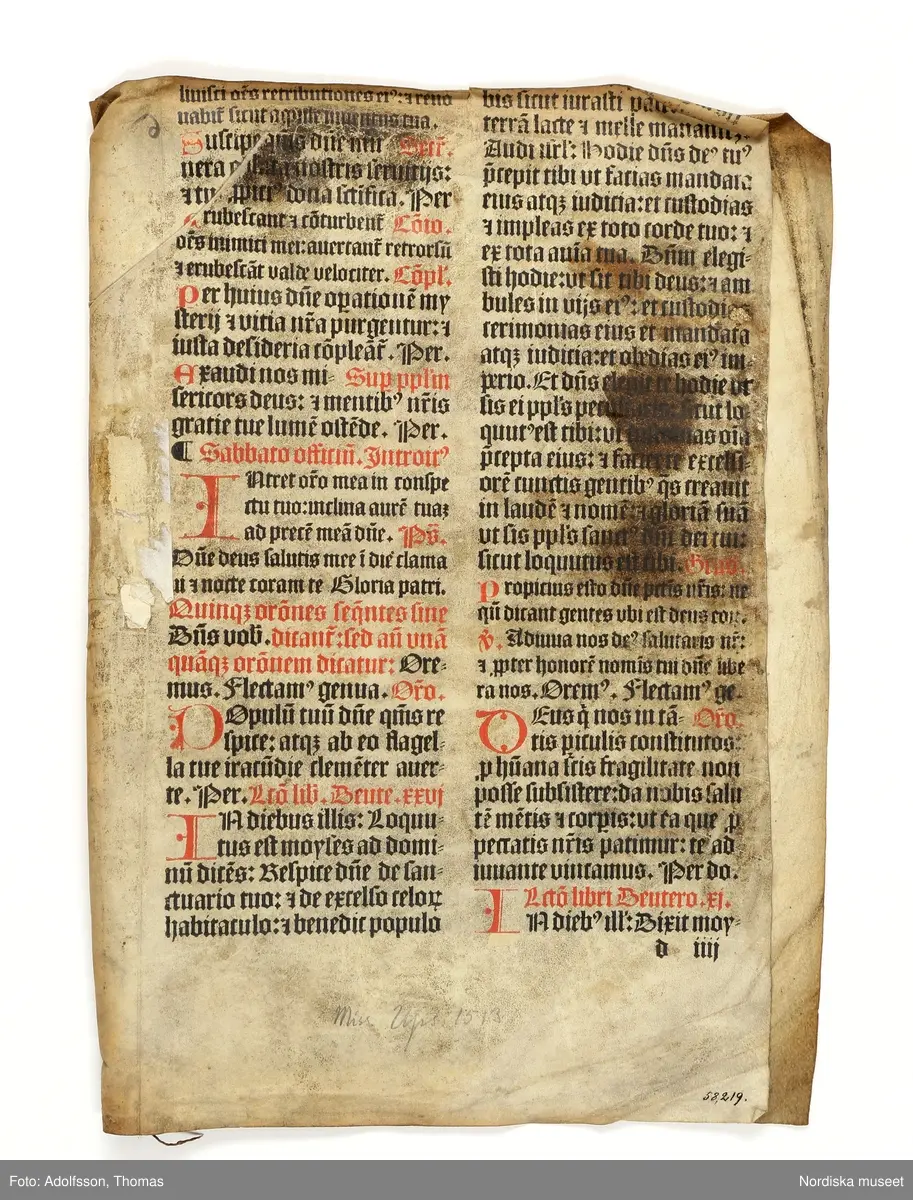 uiuisti oēs retributiones eiꝰ: ⁊ reno
uabit̄ sicut aquile iuuentus tua.
Suscipe dn̄e Secr̄.
nostris seruitijs:
⁊ tu ꝓpiciꝰ dona sc̄ifica. Per
Erubescant ⁊ cōturbent̄ Cōio.
oēs inimici mei: auertant̄ retrorsū
⁊ erubescāt valde velociter. Cōpl̄.
Per huius dn̄e oꝑationē my
sterij ⁊ vitia nr̄a purgentur: ⁊
iusta desideria cōpleāt̄. Per.
Exaudi nos mi- Sup ppl̄m
sericors deus: ⁊ mentibꝰ nr̄is
gratie tue lumē ostēde. Per.
¶ Sabbato officiū. Introitꝰ
INtret or̄o mea in conspe
ctu tuo: inclina aurē tuaꝫ
ad precē meā dn̄e. Ps̄.
Dn̄e deus salutis mee ī die clama
ui ⁊ nocte coram te Gloria patri.
Quinqꝫ orōnes seq̄ntes sine
Dn̄s vob̄. dicant̄: sed an̄ vnā
quāqꝫ orōnem dicatur: Ore-
mus. Flectamꝰ genua. Or̄o.
POpulū tuū dn̄e qm̄s re
spice: atqꝫ ab eo flagel-
la tue iracūdie clemēter auer-
te. Per. Lctō lib̄. Deute. xxvj
IN diebus illis: Loquu-
tus est moyses ad domi-
nū dicēs: Respice dn̄e de san-
ctuario tuo: ⁊ de excelso celoꝝ
habitaculo: ⁊ benedic populo
bis sicut iurasti
terrā lacte ⁊ melle manantē.
Audi isr̄l: Hodie dn̄s deꝰ tuꝰ
p̄cepit tibi vt facias mandata
eius atqꝫ iudicia: et custodias
⁊ impleas ex toto corde tuo: ⁊
ex tota aīa tua. Dn̄m elegi-
sti hodie: vt sit tibi deus: ⁊ am
bules in vijs eiꝰ: et custodias
cerimonias eius et mandata
atqꝫ iudicia: et obedias eiꝰ im-
ꝑio. Et dn̄s elegit te hodie vt
sis ei ppl̄s peculiaris: sicut lo
quutꝰ est tibi: vt custodias oīa
p̄cepta eius: ⁊ faciet te excelsi-
orē cunctis gentibꝰ q̄s creauit
in laudē ⁊ nomē: ⁊ gloriā suā
vt sis ppl̄s sanctꝰ dn̄i dei tui:
sicut loquutus est tibi. Grad̄.
Propicius esto dn̄e pctīs nr̄is: ne
qn̄ dicant gentes vbi est deus eoꝝ.
V̄. Adiuua nos deꝰ salutaris nr̄:
⁊ ꝓpter honorē nomīs tui dn̄e libe
ra nos. Oremꝰ. Flectamꝰ ge.
DEus q̄ nos in tā- Or̄o.
tis ꝑiculis constitutos:
ꝓ hūana scis fragilitate non
posse subsistere: da nobis salu
tē mētis ⁊ corꝑis: vt ea que ꝓ
peccatis nr̄is patimur: te ad
iuuante vincamus. Per do.
Lctō libri Deutero. xj.
IN diebꝰ ill̄: Dixit moy-
d iiij
Miss Ups. 1513
58,219.
Foto: Adolfsson, Thomas
Nordiska museet